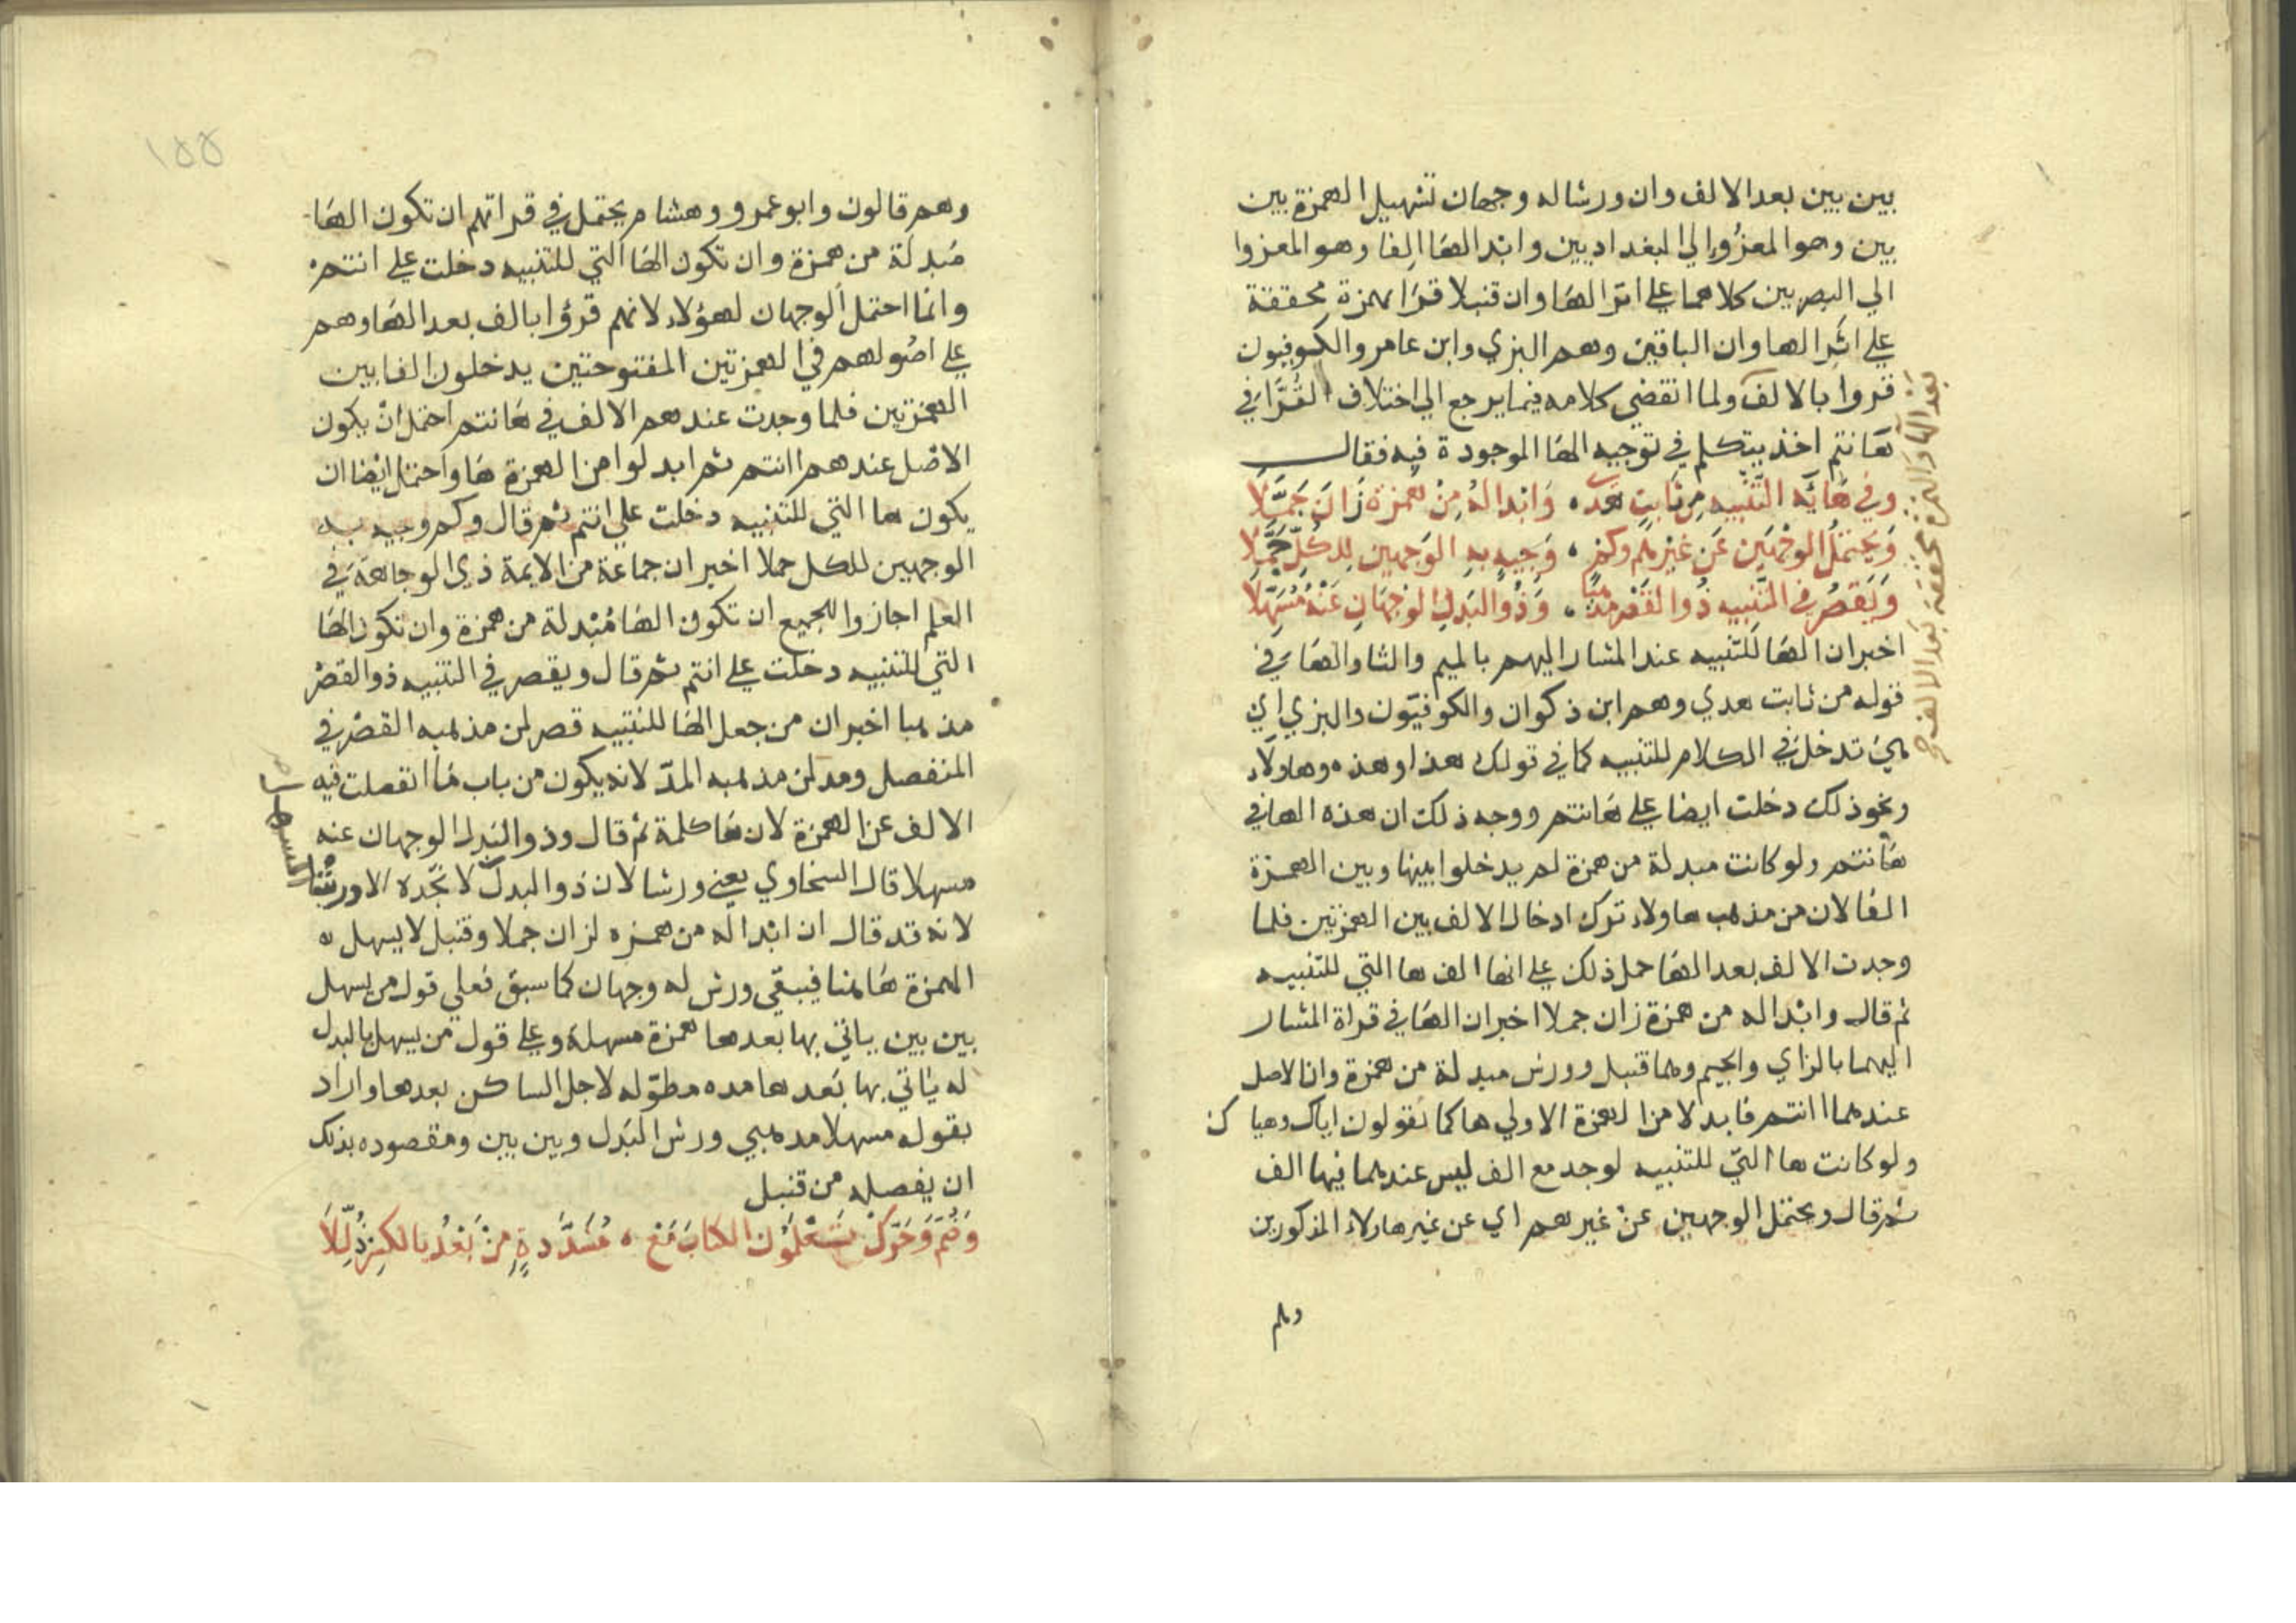 بين بين بعد الالف وان ورشا له وجهان تسهيل الهمزة بين
بين وهو المعزو الي البغداديين وابدالها الفا وهو المعزوا
الي البصريين كلاهما علي اثر الها وان قنبلا قرا بهمزة محققة
علي اثر الها وان الباقين وهم البزي وابن عامر والكوفيون
قروا بالالف ولما انقضي كلامه فيما يرجع الي اختلاف القرا في
هانتم اخذ يتكلم في توجيه الها الموجودة فيه فقال
وفي هائه التنبيه من ثابت هدي وابداله من همزة زان جملا
ويحتمل الوجهين عن غيرهم وكم وجيه به الوجهين للكل حملا
ويقصر في التنبيه ذو القصر مذهبا وذو البدل الوجهان عنه مسهلا
اخبر ان الها للتنبيه عند المشار اليهم بالميم والثا والها في
قوله من ثابت هدي وهم ابن ذكوان والكوفيون والبزي اي
هي تدخل في الكلام للتنبيه كما في قولك هذا وهذه وهاولاء
ونحو ذلك دخلت ايضا علي هانتم ووجه ذلك ان هذه الها في
هانتم ولو كانت مبدلة من همزة لم يدخلوا بينها وبين الهمزة
الفا لان من مذهب هاولاء ترك ادخال الالف بين الهمزتين فلما
وجدت الالف بعد الها حمل ذلك علي انها الف ها التي للتنبيه
ثم قال وابداله من همزة زان جملا اخبر ان الها في قراة المشار
اليهما بالزاي والجيم وهما قنبل وورش مبدلة من همزة وان الاصل
عندهما اانتم فابدلا من الهمزة الاولي ها كما تقولون اياك وهياك
ولو كانت ها التي للتنبيه لوجد مع الف ليس عندهما فيها الف
ثم قال ويحتمل الوجهين عن غيرهم اي عن غير هاولاء المذكورين
وهم
بعد الها والبزي محققة بعد الالف
١٥٥
وهم قالون وابو عمرو وهشام يحتمل في قراتهم ان تكون الها
مبدلة من همزة وان تكون الها التي للتنبيه دخلت علي انتم
وانما احتمل الوجهان لهؤلاء لانهم قرؤا بالف بعد الها وهم
علي اصولهم في الهمزتين المفتوحتين يدخلون الفا بين
الهمزتين فلما وجدت عندهم الالف في هانتم احتمل ان يكون
الاصل عندهم اانتم ثم ابدلوا من الهمزة ها واحتمل ايضا ان
يكون ها التي للتنبيه دخلت علي انتم ثم قال وكم وجيه به
الوجهين للكل حملا اخبر ان جماعة من الايمة ذي الوجاهة في
العلم اجازوا للجميع ان تكون الها مبدلة من همزة وان تكون الها
التي للتنبيه دخلت علي انتم ثم قال ويقصر في التنبيه ذو القصر
مذهبا اخبر ان من جعل الها للتنبيه قصر لمن مذهبه القصر في
المنفصل ومد لمن مذهبه المد لانه يكون من باب ما انفصلت فيه
الالف عن الهمزة لان ها كلمة ثم قال وذو البدل الوجهان عنه
مسهلا قال السخاوي يعني ورشا لان ذو البدل لا تجده الا ورشا
لانه قد قال ان ابداله من همزه لزان جملا وقنبل لا يسهل
الهمزة ها هنا فيبقي ورش له وجهان كما سبق فعلي قول من يسهل
بين بين ياتي بها بعدها همزة مسهلة وعلي قول من يسهل بالبدل
له ياتي بها بعدها مده مطوله لاجل الساكن بعدها واراد
بقوله مسهلا مذهبي ورش البدل وبين بين ومقصوده بذلك
ان يفصله من قنبل
وضم وحرك تعلمون الكتاب مع مشددة من بعد بالكسر ذللا